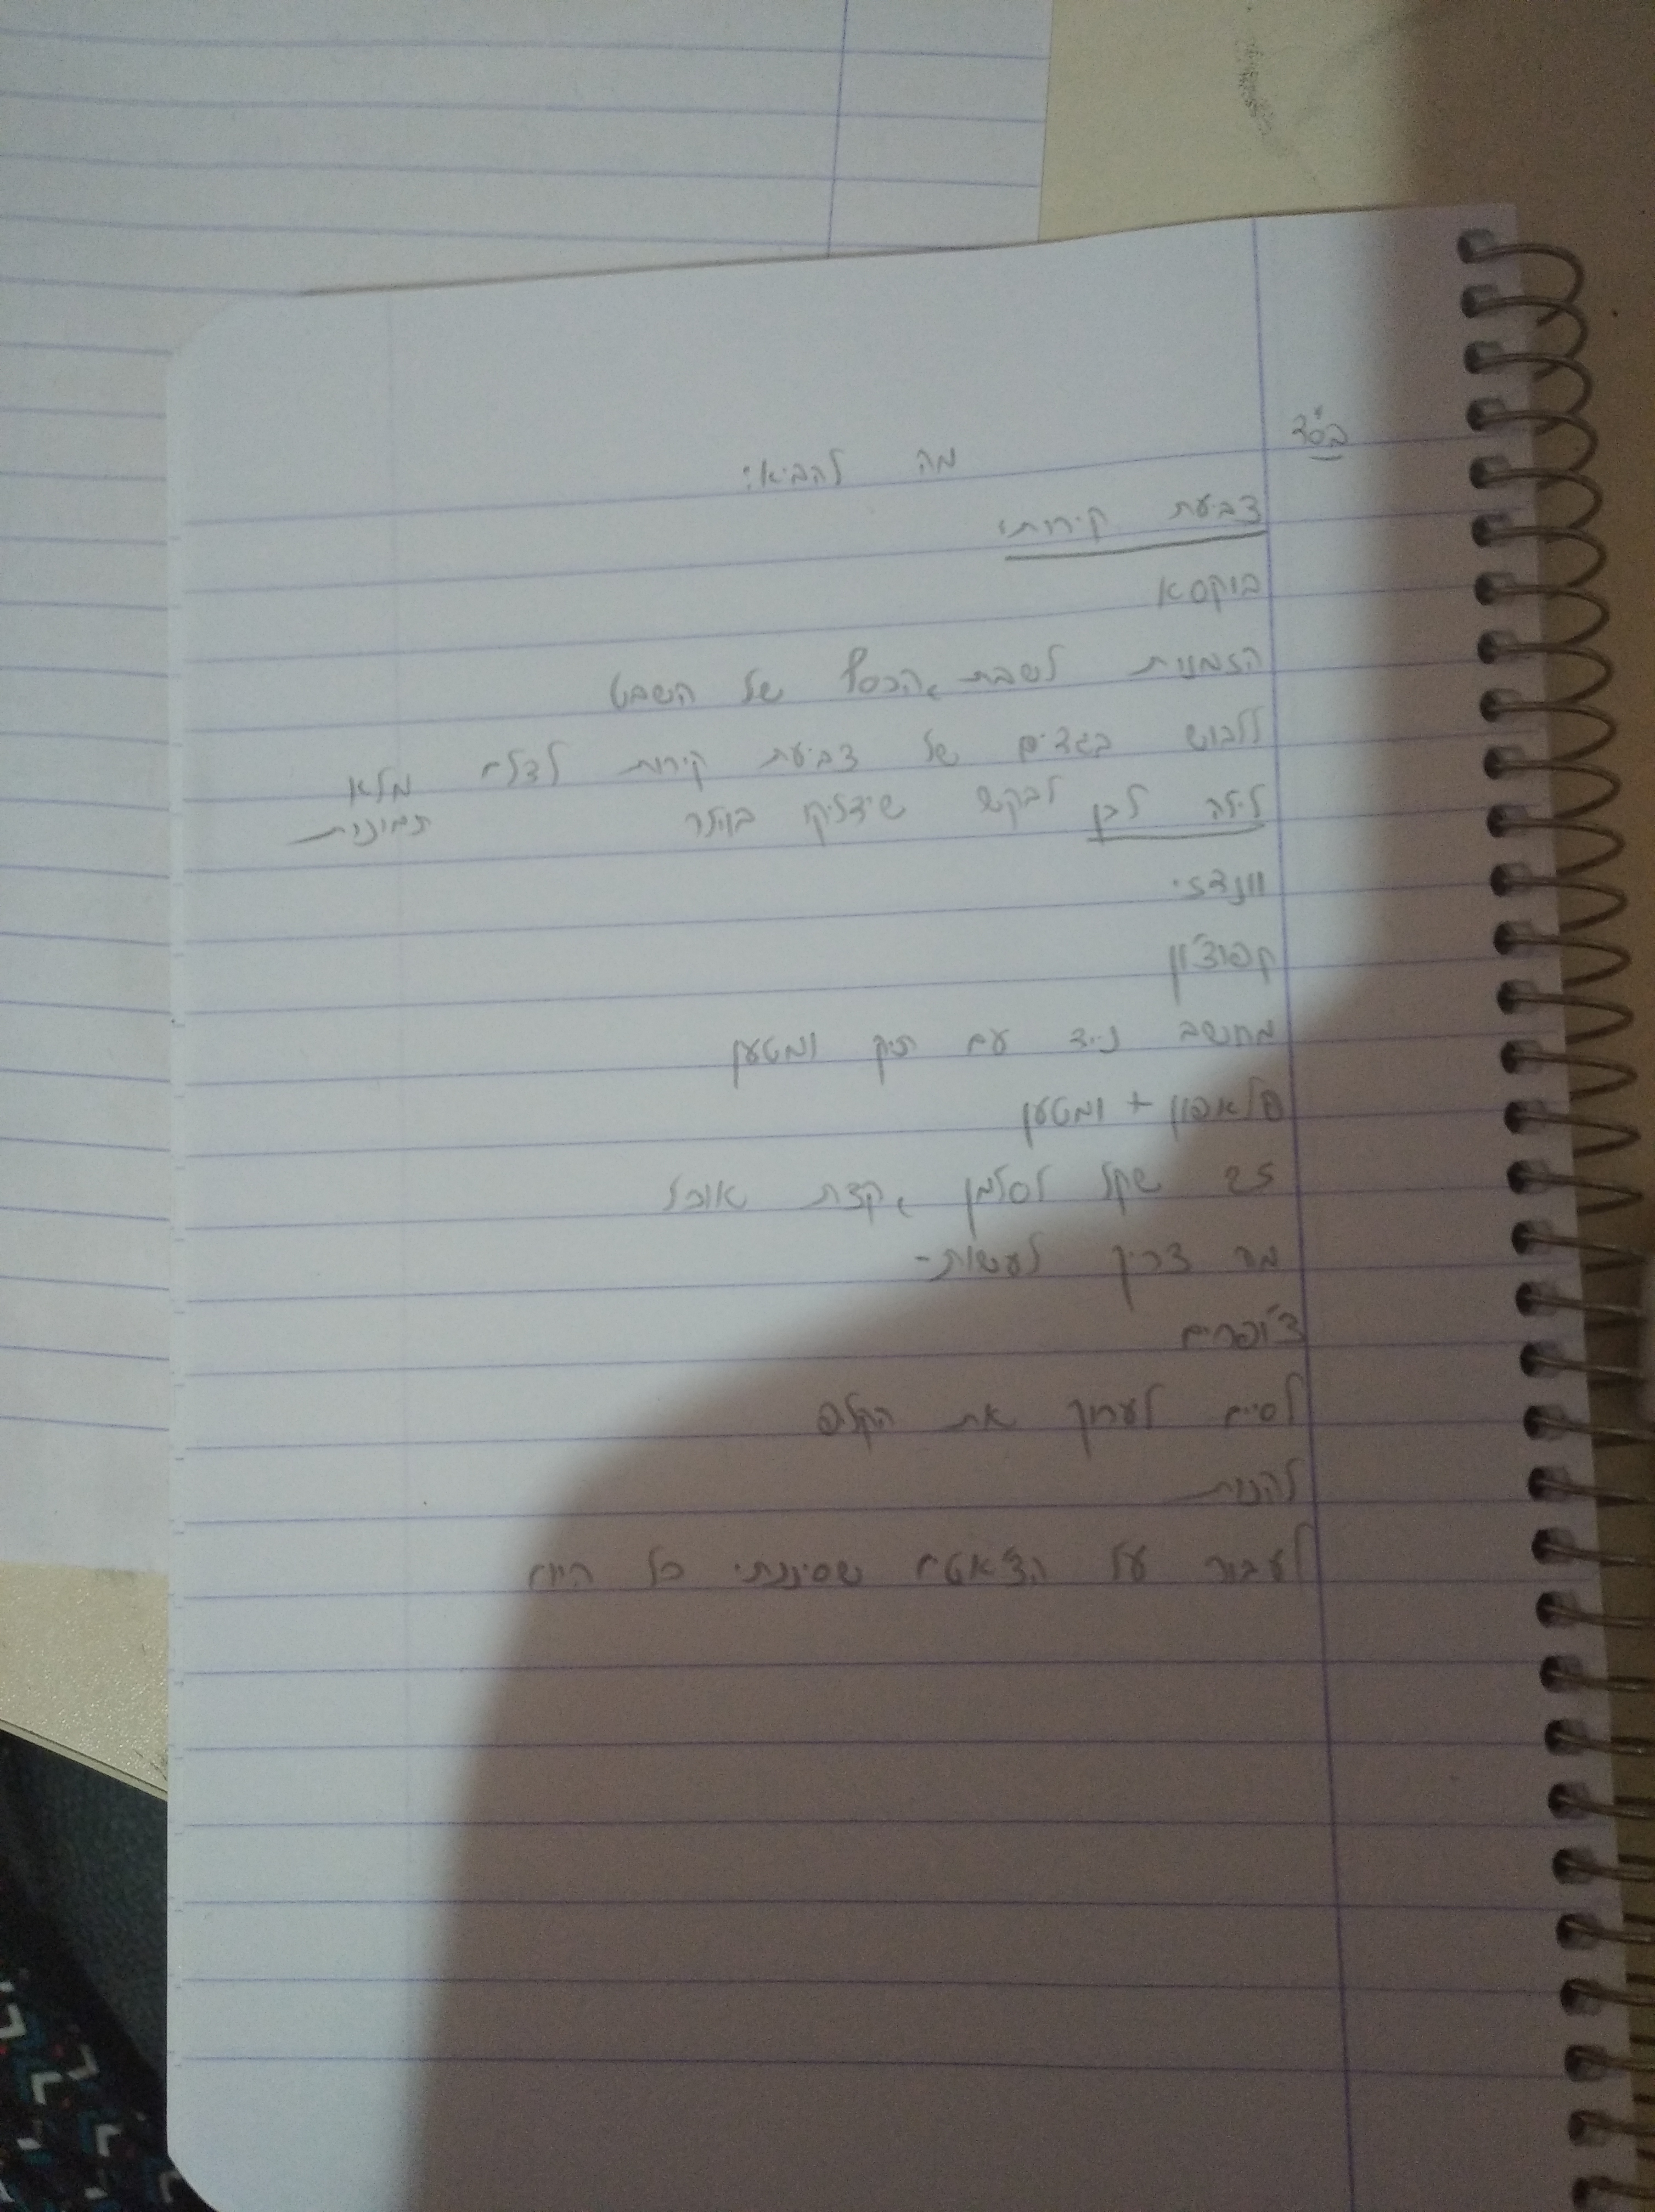 בס"ד
מה להביא:
צביעת קירות:
בוקסא
הזמנות לשבת, הכסף של השבט
ללבוש בגדים של צביעת קירות לצלם מלא תמונות
לילה לבן לבקש שידליקו בוילר
וונדזי
קפוצ'ון
מחשב נייד עם תיק ומטען
פלאפון + ומטען
25 שקל לסלמן, קצת אוכל
מה צריך לעשות-
צ'ופרים
לסיים לערוך את הקליפ
להנות
לעבור על הצ'אטים שסיננתי כל היום